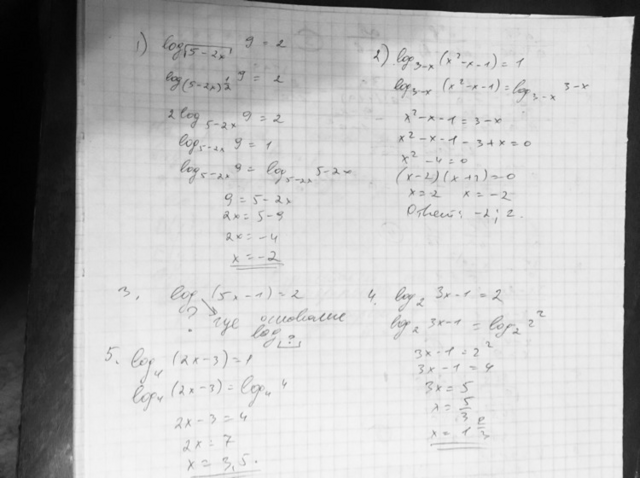 1) log√(5-2x) 9 = 2
log(5-2x)^½ 9 = 2
2 log₅₋₂ₓ 9 = 2
log₅₋₂ₓ 9 = 1
log₅₋₂ₓ 9 = log₅₋₂ₓ 5-2x
9 = 5-2x
2x = 5-9
2x = -4
x = -2
2) log₃₋ₓ (x²-x-1) = 1
log₃₋ₓ (x²-x-1) = log₃₋ₓ 3-x
x²-x-1 = 3-x
x²-x-1-3+x=0
x²-4=0
(x-2)(x+2)=0
x=2 x=-2
Ответ: -2; 2.
3. log (5x-1) = 2
? где основание
log ?
4. log₂ 3x-1 = 2
log₂ 3x-1 = log₂ 2²
3x-1 = 2²
3x-1 = 4
3x = 5
x = 5/3
x = 1 2/3
5. log₄ (2x-3) = 1
log₄ (2x-3) = log₄ 4
2x-3 = 4
2x = 7
x = 3,5.